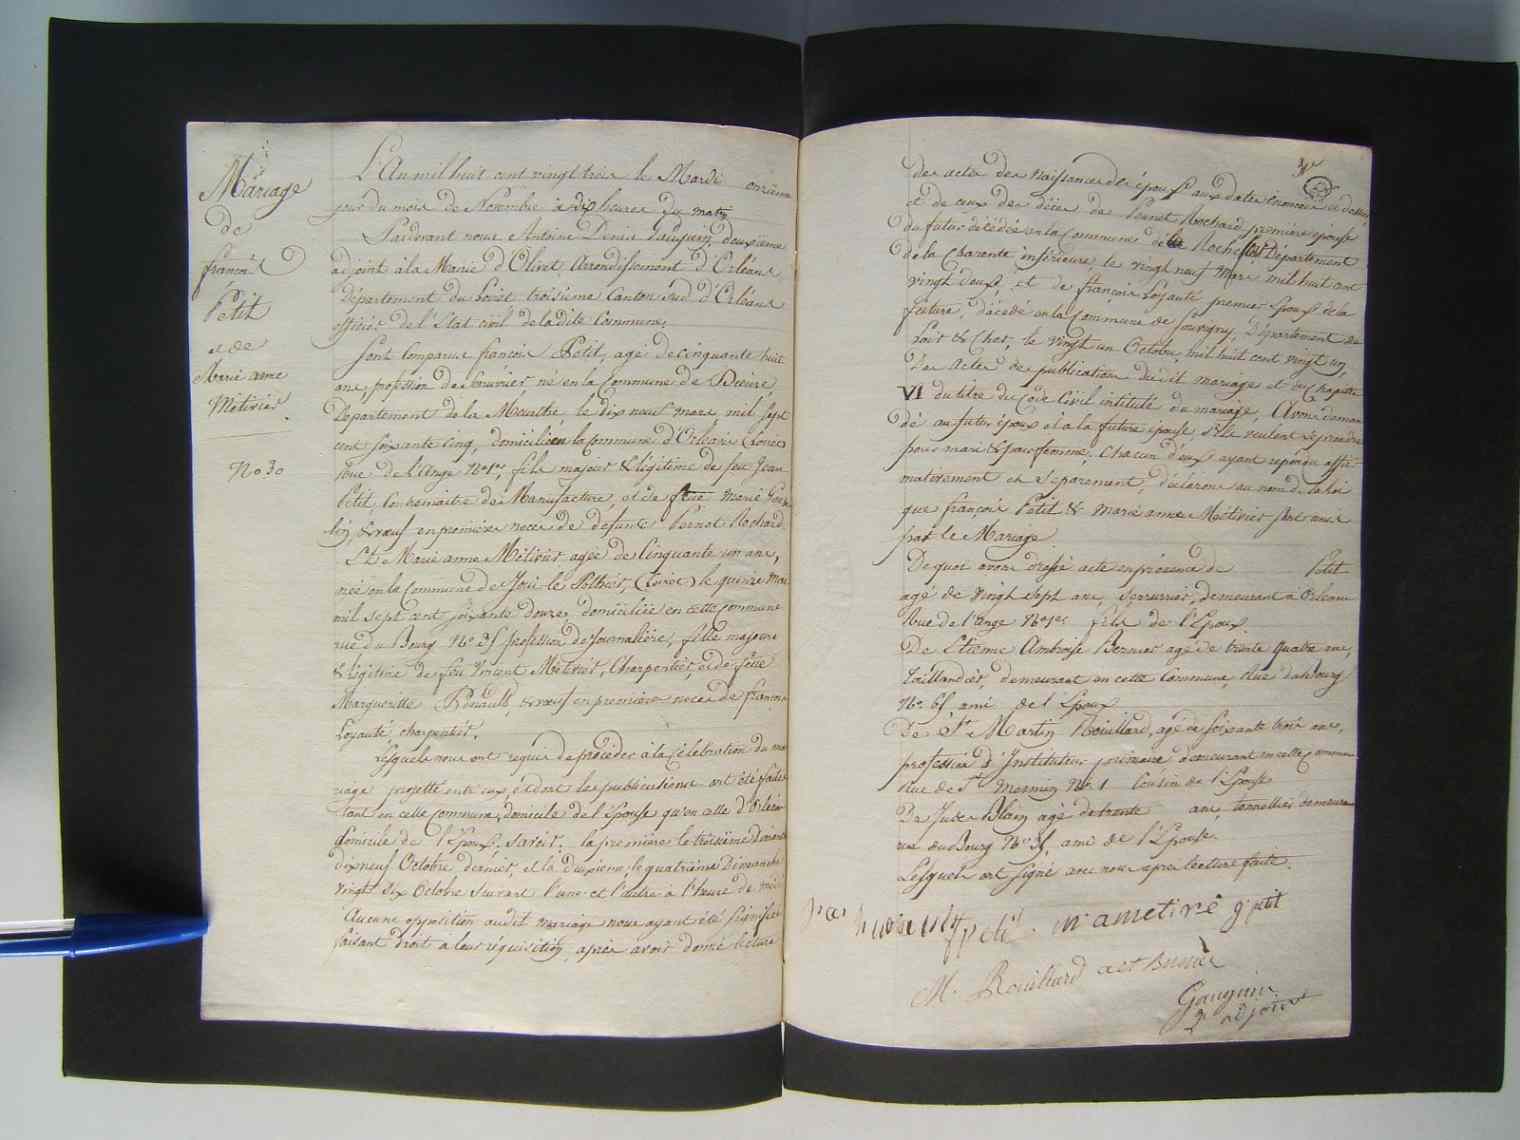 Mariage
de
françois
Petit
et de
Marie anne
Métivier
No 30
L'An mil huit cent vingt trois le Mardi onzieme
jour du mois de Novembre à dix heures du matin
Pardevant nous Antoine Denis Gauguin deuxième
adjoint à la Mairie d'Olivet Arrondissement d'Orléans
Département du Loiret troisième Canton Sud d'Orléans
officier de l'Etat civil de la dite Commune.
Sont Comparus françois Petit, agé de cinquante huit
ans, profession de né en la Commune de
Departement de la Meurthe le dix neuf mars mil sept
cent soixante cinq, domicilié en la commune d'Orléans (Loiret)
Rue de l'Ange No 1er, fils majeur & légitime de feu Jean
Petit, Contremaitre de Manufacture, et de feue Marie
& veuf en premières noces de défunte Perinet Rochard,
Et Marie anne Métivier agée de Cinquante un ans,
née en la Commune de Joui le Pothier, (Loiret) le quinze Mai
mil sept cent soixante douze, domiciliée en cette commune
rue du Bourg No profession de Journalière, fille majeure
& légitime de feu Vincent Métivier, Charpentier, et de feüe
Margueritte Renault, & veuve en première noces de francois
Loyauté, charpentier.
Lesquels nous ont requis de procéder à la Célébration du ma
riage projetté entre eux, & dont les publications ont été faites
tant en cette commune, domicile de l'Epouse qu'en celle d'Orléans
domicile de l'Epoux, Savoir: la première le troisième Dimanche
dix neuf Octobre dernier, et la deuxieme, le quatrième Dimanche
Vingt six Octobre suivant l'une et l'autre à l'heure de midi
Aucune opposition audit mariage nous ayant été signifiée
faisant droit à leur réquisition, après avoir donné lecture
des actes des Naissances des époux aux dates énoncées ci dessus
et de ceux des décès de Perinet Rochard première épouse
du futur décédée en la Commune de Rochefort Département
de la Charente inférieure, le vingt neuf Mars mil huit cent
vingt deux, et de françois Loyauté premier époux de la
future, décédé en la Commune de Souvigny, Département de
Loir & Cher, le vingt un Octobre mil huit cent vingt un,
Des Actes de publication dudit mariage et du Chapitre
VI du titre du Code Civil intitulé du mariage, Avons deman
dé au futur époux et à la future épouse s'ils veulent se prendre
pour mari & pour femme, Chacun d'eux ayant répondu affir
mativement et séparément, déclarons au nom de la loi
que françois Petit & Marie anne Métivier sont unis
par le Mariage
De quoi avons dressé acte en présence de Petit
agé de vingt sept ans, Serrurier, demeurant à Orléans
Rue de l'Ange No 1er fils de l'Epoux
De Etienne Ambroise Bernier agé de trente quatre ans,
Taillandier, demeurant en cette Commune, Rue du Bourg
No ami de l'Epoux
De Martin Rouillard, agé de soixante trois ans,
profession d'Instituteur primaire demeurant en cette Commune
Rue de St Mesmin No 1 Cousin de l'Epouse
De Jude Blain agé de trente ans, tonnellier demeurant
rue du Bourg No ami de l'Epouse
Lesquels ont signé avec nous après lecture faite.
f petit
m ametivé
g petit
M. Rouillard
Gauguin
adjoint